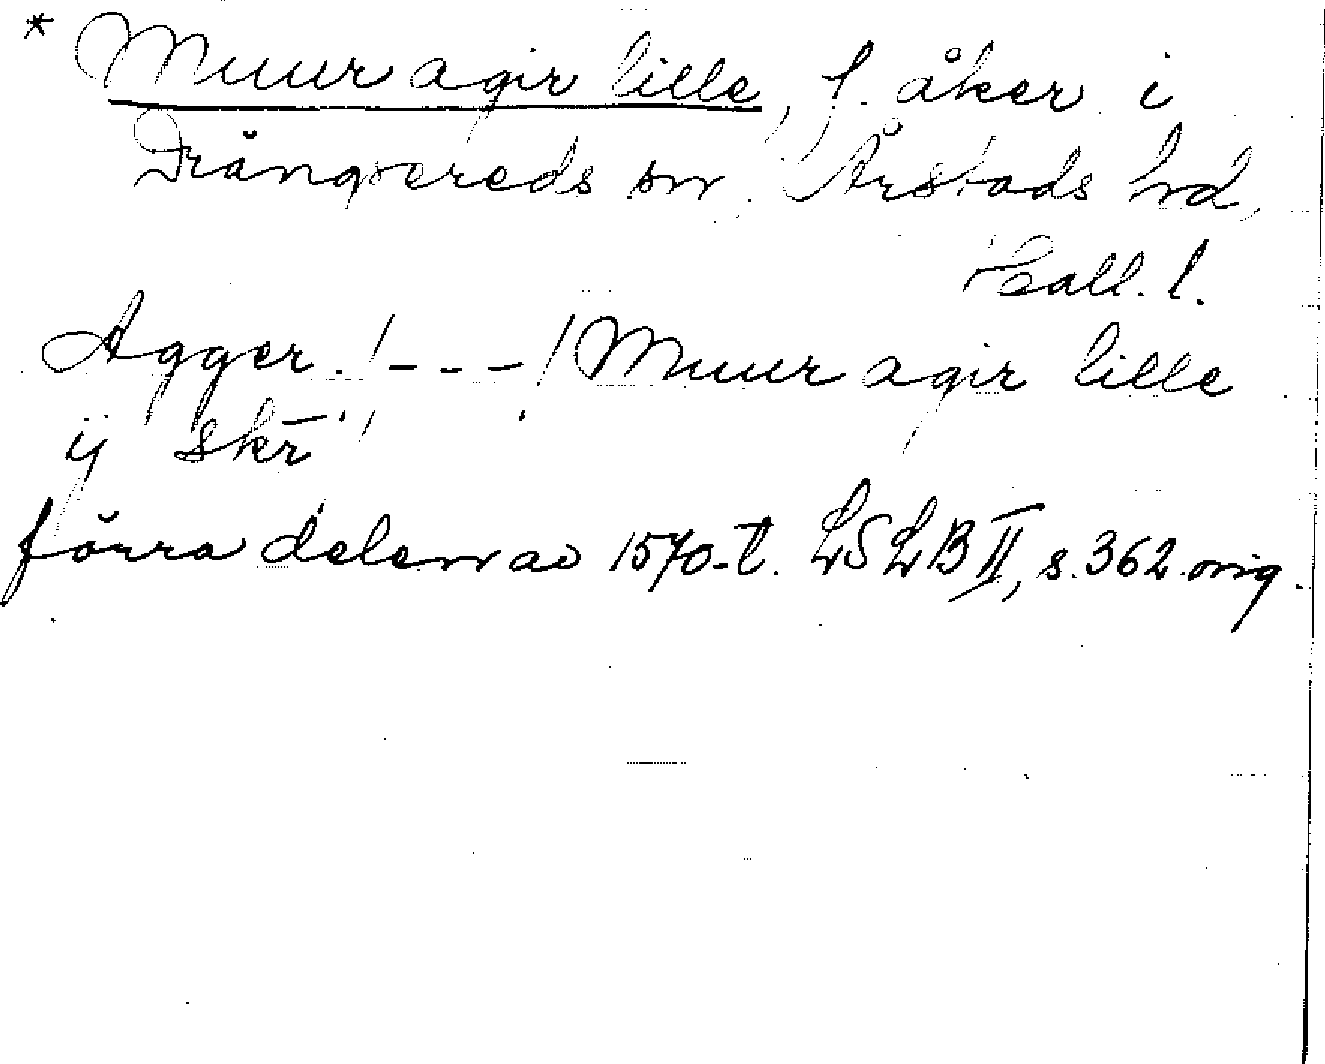 * Muur agir lille, f. åker i
Drängsereds sn. Årstads hd,
Hall. l.
Agger. /---/ Muur agir lille
ij skr̄
förra delen av 1570-t. LSLB II, s. 362 orig.